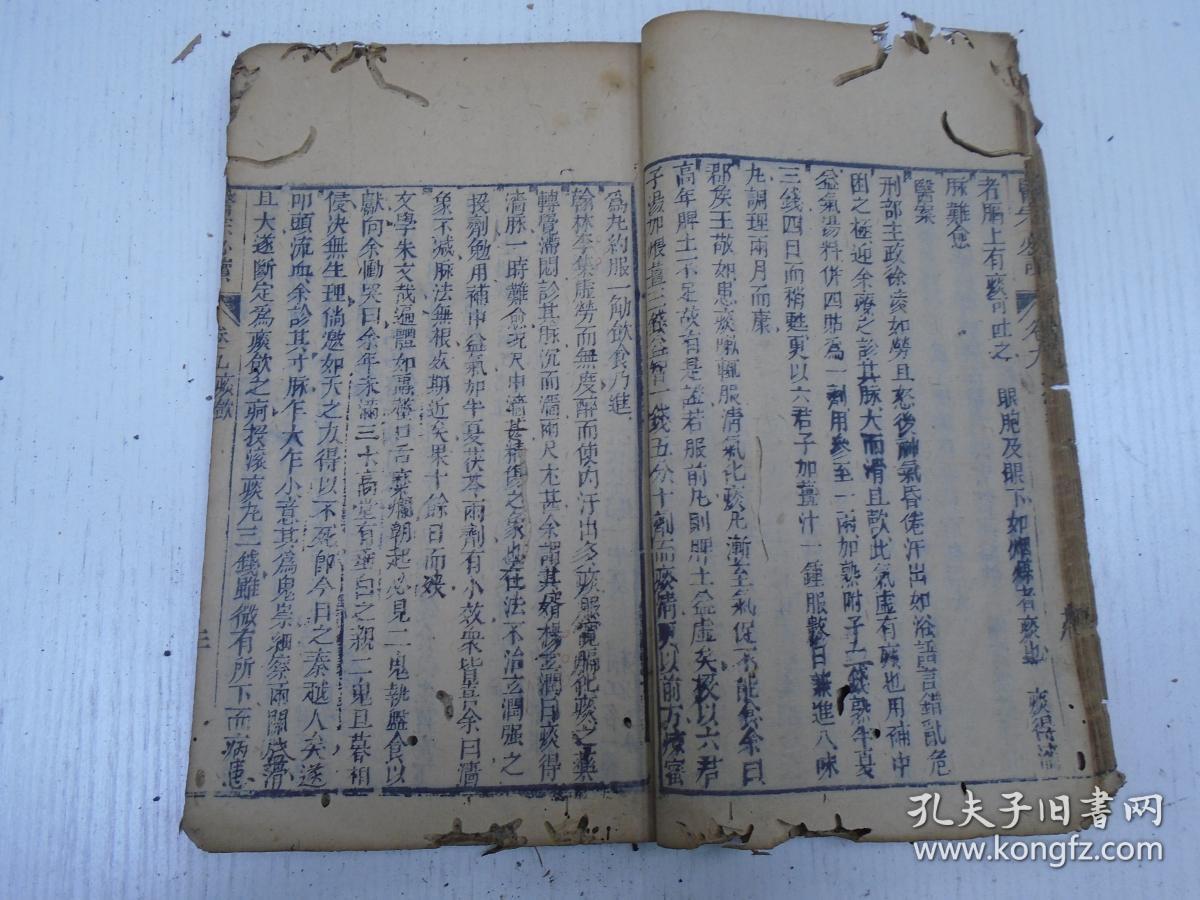 者膈上有痰可吐之　眼胞及眼下如烟煤者痰也　痰得澁
脉難愈
醫案
刑部主政徐凌如勞且怒後神氣昏倦汗出如浴語言錯亂危
困之極迎余療之診其脉大而滑且軟此氣虛有痰也用補中
益氣湯料併四貼為一劑用參至一兩加熟附子一錢熟半夏
三錢四日而稍甦更以六君子加薑汁一鍾服數日兼進八味
丸調理兩月而康
郡矦王敬如患痰嗽輒服清氣化痰丸漸至氣促不能食余曰
高年脾土不足故有是證若服前丸則脾土益虛矣投以六君
子湯加煨薑三錢益智一錢五分十劑而痰清更以前方煉蜜
為丸約服一觔飲食乃進
翰林李集虛勞而無度醉而使內汗出多痰服寬膈化痰之藥
轉覺滯悶診其脉沉而濇兩尺尤甚余謂其婿楊玄潤曰痰得
濇脉一時難愈况尺中濇甚精傷之象也在法不治玄潤强之
投劑勉用補中益氣加半夏茯苓兩劑有小效衆皆喜余曰濇
象不减脉法無根死期近矣果十餘日而殁
文學朱文哉遍體如蟲螫口舌糜爛朝起必見二鬼執盤食以
獻向余慟哭曰余年未滿三十高堂有垂白之親二鬼旦暮相
侵决無生理倘邀如天之力得以不死即今日之秦越人矣遂
叩頭流血余診其寸脉乍大乍小意其為鬼祟細察兩關脉滑
且大遂斷定為痰飲之疴投滾痰丸三錢雖微有所下而病患
醫宗必讀
卷九　痰飲
三
孔夫子旧书网
www.kongfz.com